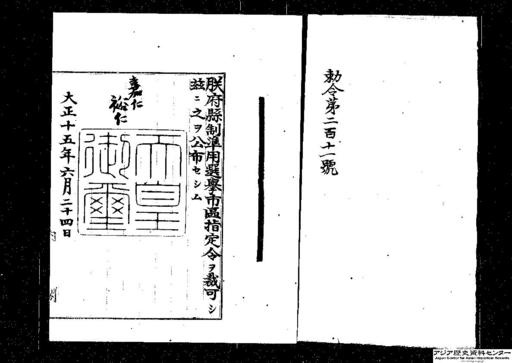 勅令第二百十一號
朕府縣制準用選擧市區指定令ヲ裁可シ
茲ニ之ヲ公布セシム
嘉仁
裕仁
天皇御璽
大正十五年六月二十四日
内閣
アジア歴史資料センター
Japan Center for Asian Historical Records